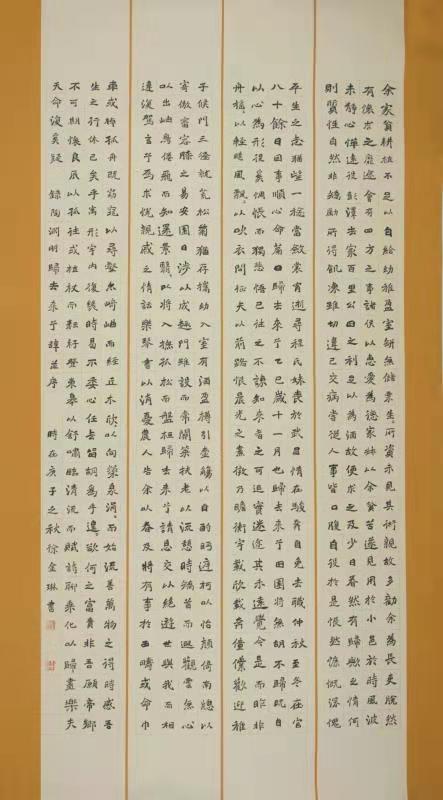 余家貧耕植不足以自給幼稚盈室缾無儲粟生〻所資未見其術親故多勸余為長吏脫然
有懷求之靡途會有四方之事諸侯以惠愛為德家叔以余貧苦遂見用於小邑於時風波
未靜心憚遠役彭澤去家百里公田之利足以為酒故便求之及少日眷然有歸歟之情何
則質性自然非矯勵所得飢凍雖切違己交病嘗從人事皆口腹自役於是悵然慷慨深愧
平生之志猶望一稔當斂裳宵逝尋程氏妹喪於武昌情在駿奔自免去職仲秋至冬在官
八十餘日因事順心命篇曰歸去來兮乙巳歲十一月也歸去來兮田園將蕪胡不歸既自
以心為形役奚惆悵而獨悲悟已往之不諫知來者之可追實迷途其未遠覺今是而昨非
舟搖〻以輕颺風飄〻以吹衣問征夫以前路恨晨光之熹微乃瞻衡宇載欣載奔僮僕歡迎稚
子候門三徑就荒松菊猶存攜幼入室有酒盈樽引壺觴以自酌眄庭柯以怡顏倚南窗以
寄傲審容膝之易安園日涉以成趣門雖設而常關策扶老以流憩時矯首而遐觀雲無心
以出岫鳥倦飛而知還景翳〻以將入撫孤松而盤桓歸去來兮請息交以絕遊世與我而相
違復駕言兮焉求悅親戚之情話樂琴書以消憂農人告余以春及將有事於西疇或命巾
車或棹孤舟既窈窕以尋壑亦崎嶇而經丘木欣〻以向榮泉涓〻而始流善萬物之得時感吾
生之行休已矣乎寓形宇內復幾時曷不委心任去留胡為乎遑〻欲何之富貴非吾願帝鄉
不可期懷良辰以孤往或植杖而耘耔登東皋以舒嘯臨清流而賦詩聊乘化以歸盡樂夫
天命復奚疑 錄陶淵明歸去來兮辭並序 時在庚子之秋徐金琳書